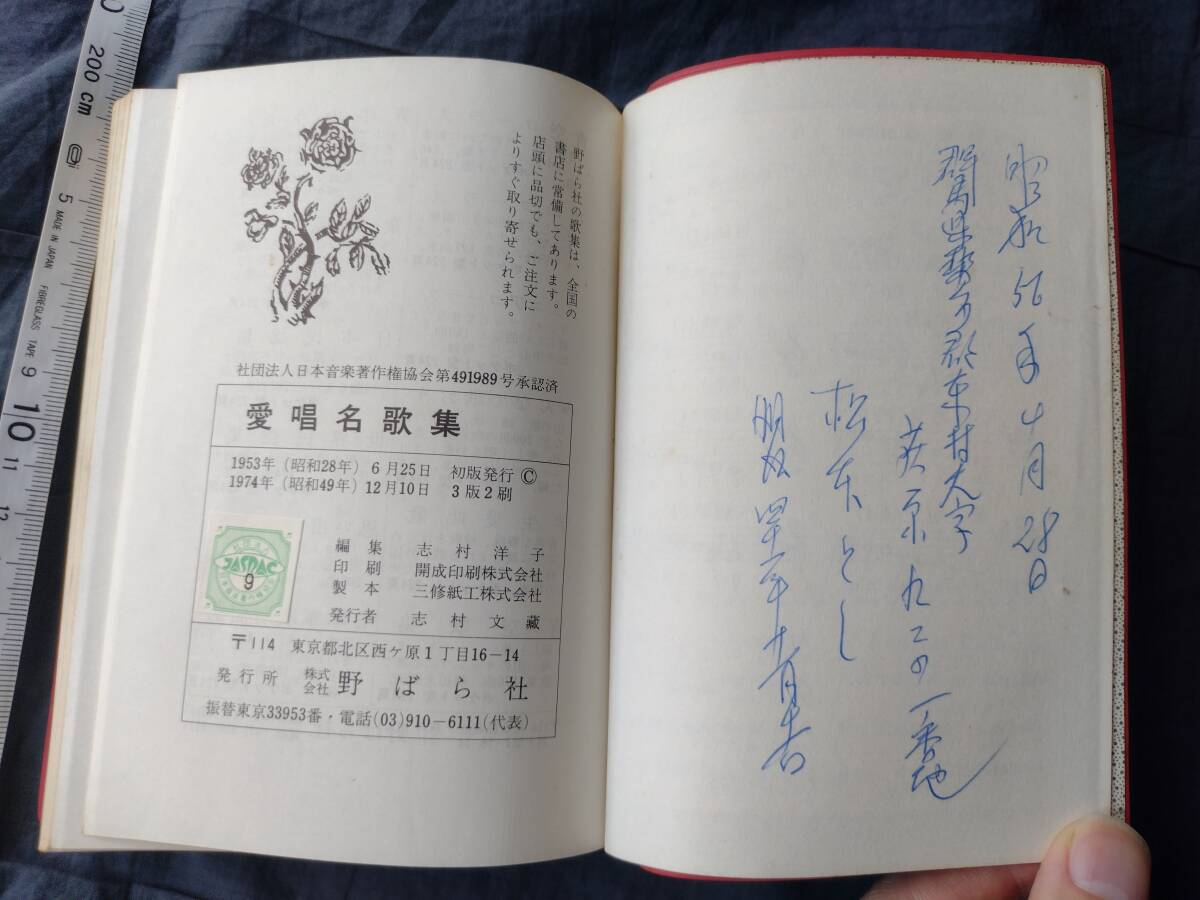 野ばら社の歌集は、全国の
書店に常備してあります。
店頭に品切でも、ご注文に
よりすぐ取り寄せられます。
社団法人日本音楽著作権協会第491989号承認済
愛唱名歌集
1953年(昭和28年) 6月25日 初版発行 ©
1974年(昭和49年) 12月10日 3版2刷
JASRAC
9
編集 志村洋子
印刷 開成印刷株式会社
製本 三修紙工株式会社
発行者 志村文藏
〒114 東京都北区西ケ原1丁目16-14
発行所 株式会社 野ばら社
振替東京33953番・電話(03)910-6111(代表)
昭和56年4月28日
群馬県勢多郡東村大字
萩原九二の一番地
松本とし
200 cm
5
MADE IN JAPAN
FIBREGLASS TAPE
9
10
11
12